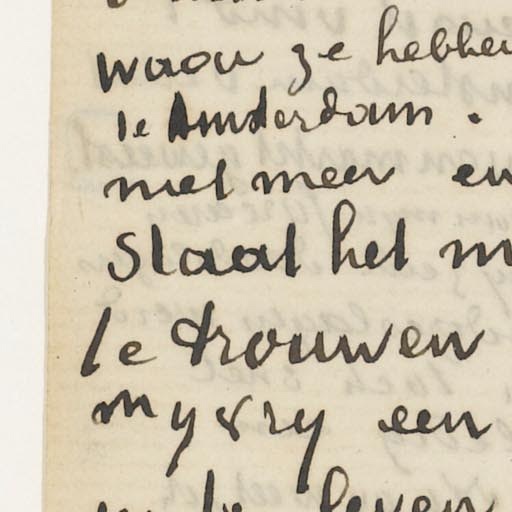 waar ze hebben
te Amsterdam.
niet meer en
staat het m
te trouwen
my vry een
leven